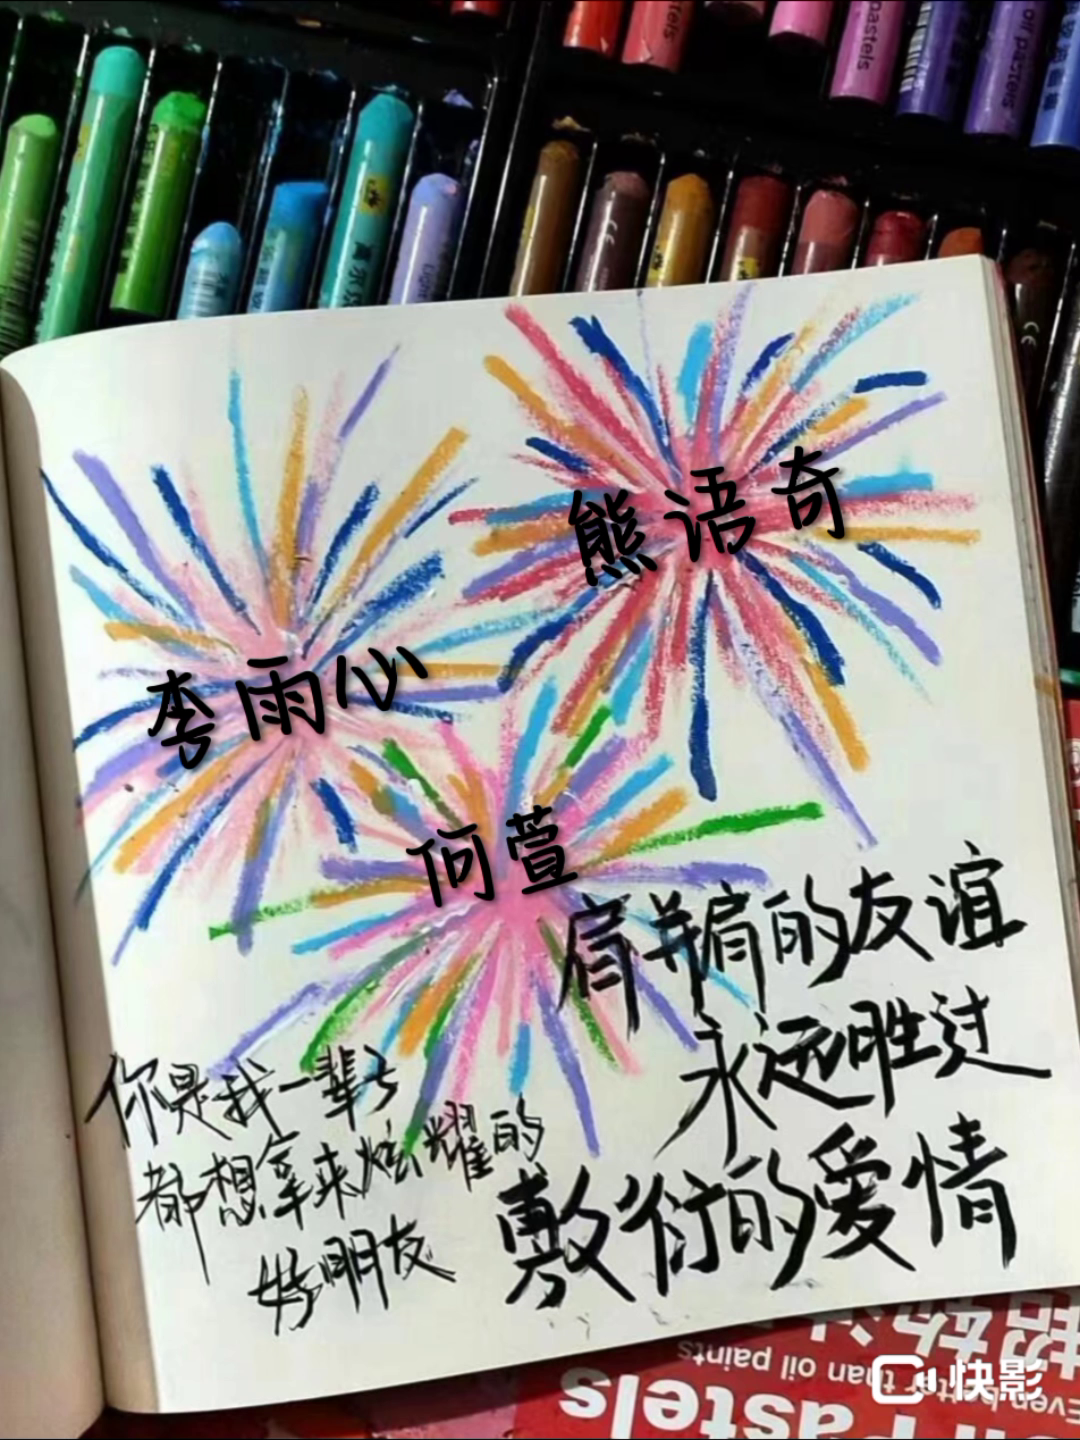 pastels
oil pastels
熊语奇
李雨心
何萱
肩并肩的友谊
永远胜过
敷衍的爱情
你是我一辈子
都想拿来炫耀的
好朋友
Even better than oil paints
快影